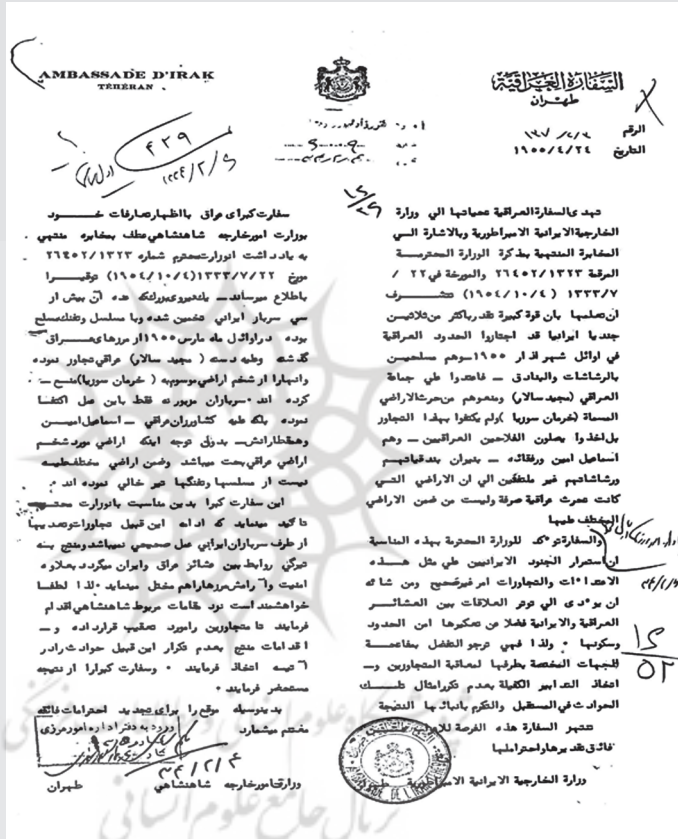 AMBASSADE D'IRAK
TÉHÉRAN
السفارة العراقية
طهران
الرقم
التاريخ ١٩٥٥/٤/٢٤
٤٢٩
تهدي السفارة العراقية تحياتها الي وزارة
الخارجية الايرانية الامبراطورية وبالاشارة الــى
المخابرة المنتهية بمذكرة الوزارة المحترمــة
المرقمة ٢٦٤٥٢/١٣٢٣ والمورخة في ٢٢ /
١٣٣٣/٧ ( ١٩٥٤/١٠/٤ ) تتشـــرف
ان تعلمها بان قوة كبيرة تقدر باكثر من ثلاثيــن
جنديا ايرانيا قد اجتازوا الحدود العراقية
في اوائل شهر اذار ١٩٥٥ ــ وهم مسلحيــن
بالرشاشات والبنادق ــ فاعتدوا علي جماعة
العراقي (مجيد سالار) ومنعوهم من حرث الاراضي
المسماة (خرمان سوريا ) ولم يكتفوا بهذا التجاوز
بل اخذوا يصلون الفلاحين العراقيين ــ وهم
اسماعيل امين ورفقائه ــ بنيران بندقياتهــم
ورشاشاتهم غير ملتفتين الي ان الاراضي التــي
كانت تحرث عراقية صرفة وليست من ضمن الاراضي
المختلف عليها
والسفارة توكد للوزارة المحترمة بهذه المناسبة
ان استمرار الجنود الايرانيين علي مثل هـــذه
الاعتداءات والتجاوزات امر غير صحيح ومن شانه
ان يودي الي توتر العلاقات بين العشائـــر
العراقية والايرانية فضلا عن تعكيرها امن الحدود
وسكونها ٠ ولذا فهي ترجو التفضل بمفاتحــة
الجهات المختصة بطرفها لمعاقبة المتجاوزين وــ
اتخاذ التدابير الكفيلة بعدم تكرار امثال تلــك
الحوادث في المستقبل والتكرم بانبائها النتيجة
تنتهز السفارة هذه الفرصة للاعراب
فائق تقديرها واحترامها
وزارة الخارجية الايرانية الامبراطورية
سفارت کبرای عراق با اظهار تعارفات خـــود
بوزارت امور خارجه شاهنشاهی عطف بمخابره منتهی
به یادداشت انوزارت محترم شماره ٢٦٤٥٢/١٣٢٣
مورخ ١٣٣٣/٧/٢٢ (١٩٥٤/١٠/٤) توقیــرا
باطلاع میرساند ــ یک نیروی بزرگ که عده آن بیش از
سی سرباز ایرانی تخمین شده و با مسلسل و تفنگ مسلح
بوده در اوائل ماه مارس ١٩٥٥ از مرزهای عـــراق
گذشته وعلیه دسته ( مجید سالار) عراقی تجاوز نموده
وانها را از شخم اراضی موسوم به ( خرمان سوریا) منــع ــ
کرده اند ٠ سربازان مزبور نه فقط باین عمل اکتفا
نموده بلکه علیه کشاورزان عراقی ــ اسماعیل امیــن
و همقطارانش ــ بدون توجه اینکه اراضی مورد شخــم
اراضی عراقی بحت میباشد وضمن اراضی مختلف علیـه
نیست از مسلسلها وتفنگها تیر خالی نموده اند ٠
این سفارت کبرا بدین مناسبت بانوزارت محتــرم
تاکید مینماید که ادامه این قبیل تجاوزات وتعدیها
از طرف سربازان ایرانی عمل صحیحی نمیباشد ومنتج بـه
تیرگی روابط بین عشائر عراق وایران میگردد بعلاوه
امنیت و آرامش مرزها را هم مختل مینماید ٠ لذا لطفـا
خواهشمند است نزد مقامات مربوط شاهنشاهی اقدام
فرمایند تا متجاوزین را مورد تعقیب قرار داده و ــ
اقدامات منتج بعدم تکرار این قبیل حوادث را در
آتیــه اتخاذ فرمایند ٠ وسفارت کبرا را از نتیجه
مستحضر فرمایند ٠
بدینوسیله موقع را برای تجدید احترامات فائقه
مغتنم میشمارد
ورود به دفتر اداره امور مرزی
٣٤/٢/٤
وزارت امور خارجه شاهنشاهی طهران